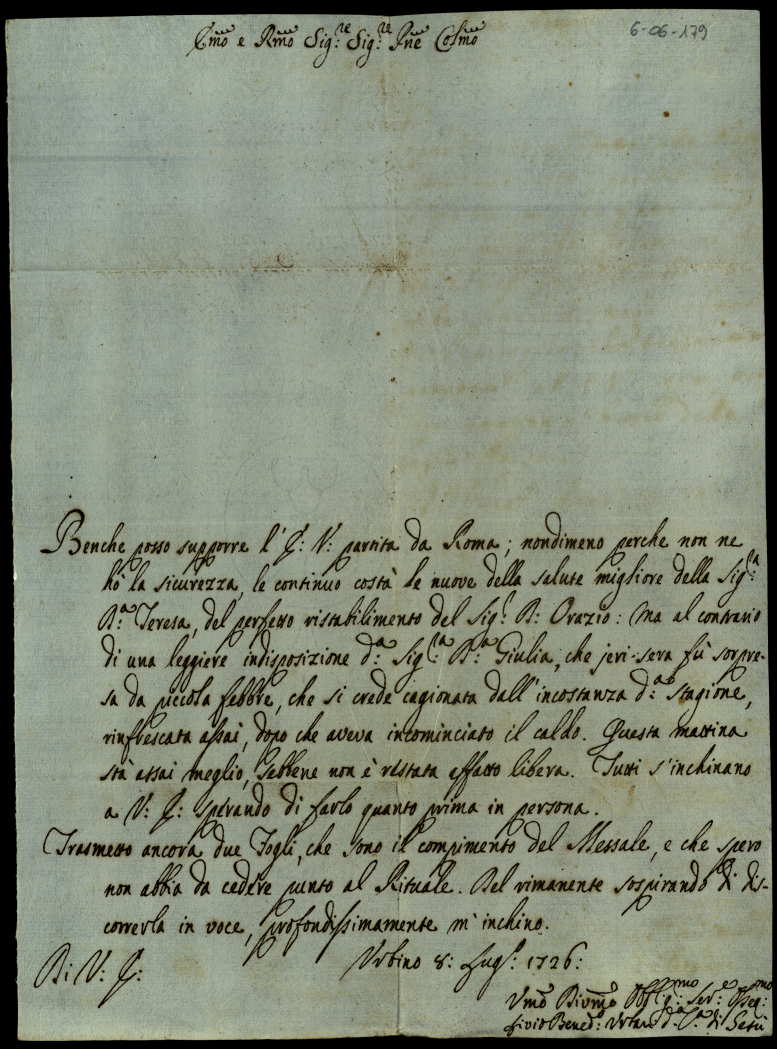 Emo e Rmo Sig:re Sig:re Pne Colmo
6-06-179
Benche posso supporre l' E: V: partita da Roma; nondimeno perche non ne
hò la sicurezza, le continuo costà le nuove della salute migliore della Sig:ra
D:a Teresa, del perfetto ristabilimento del Sig:r D: Orazio: Ma al contrario
di una leggiere indisposizione d:a Sig:ra D:a Giulia, che jeri-sera fù sorpre-
sa da piccola febbre, che si crede cagionata dall'incostanza d:a stagione,
rinfrescata assai, dopo che aveva incominciato il caldo. Questa mattina
stà assai meglio, sebbene non è restata affatto libera. Tutti s'inchinano
a V: E: sperando di farlo quanto prima in persona.
Trasmetto ancora due Fogli, che sono il compimento del Messale, e che spero
non abbia da cedere punto al Rituale. Del rimanente sospirando di dis-
correrla in voce, profondissimamente m'inchino.
Di V: E:
Urbino 8: Lug:o 1726:
Umo Divmo Obblig:mo Ser:e Osseq:mo
Livio Bened: Urban d:a C:a di Gesù